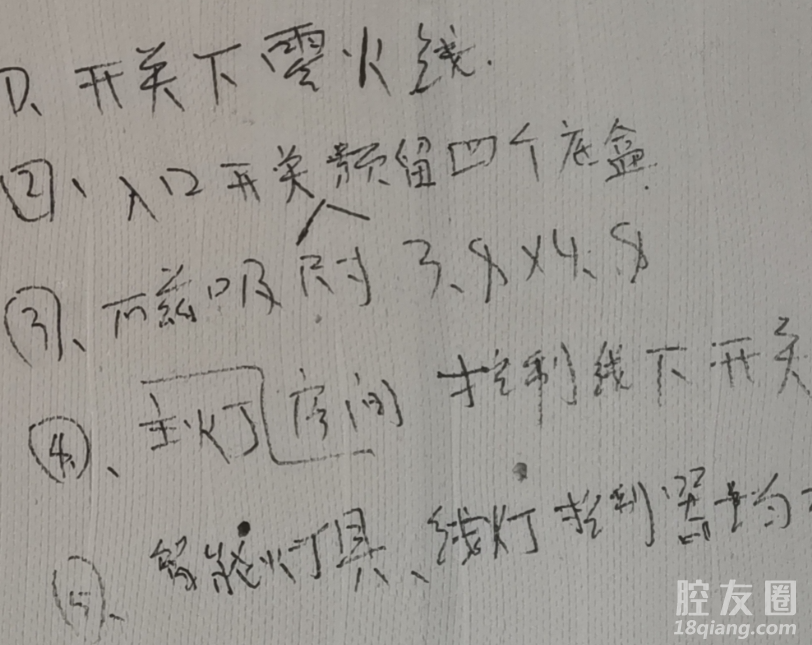 ①、开关下零火线.
②、入口开关预留四个底盒.
③、磁吸尺寸3.8×4.8
④、主灯房间 控制线下开关
⑤、智能灯具、线灯控制器均
腔友圈
18qiang.com